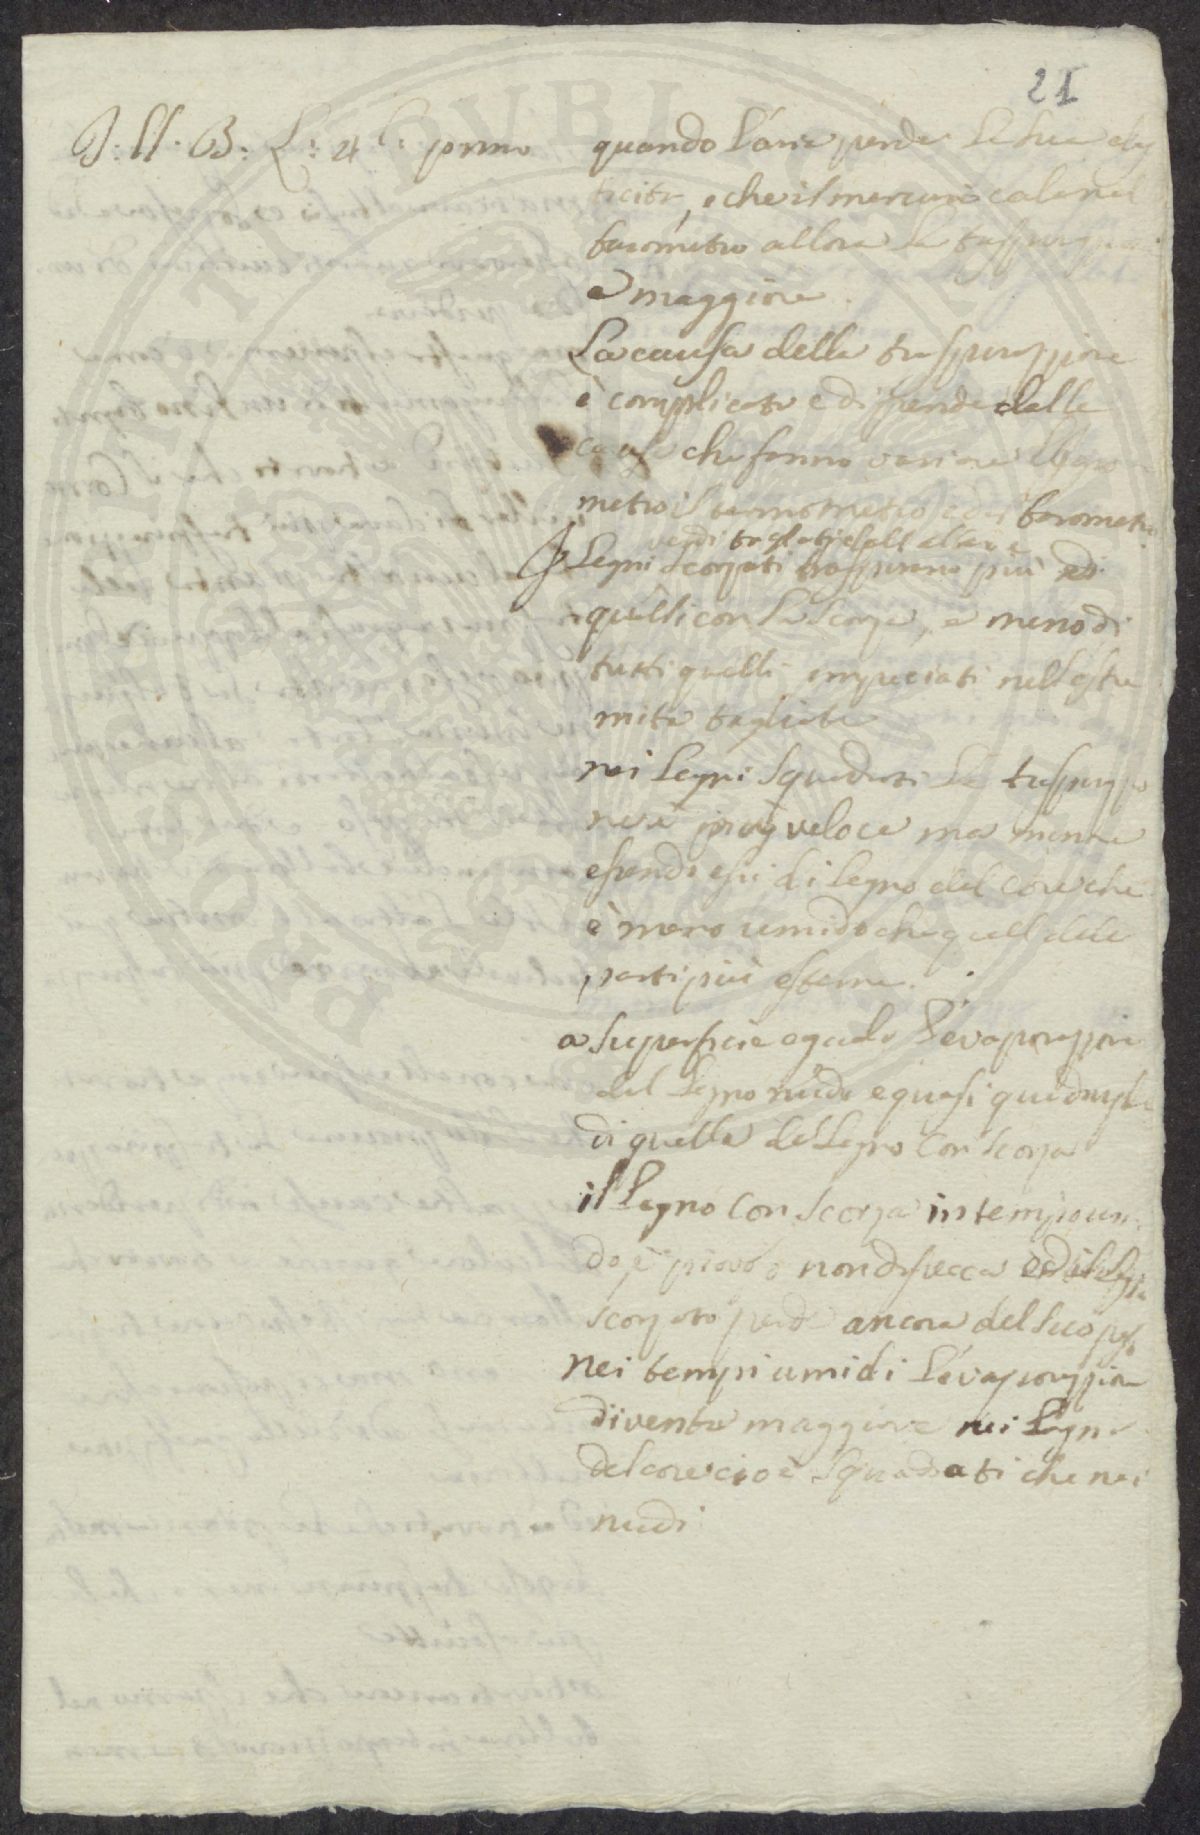 21
J: ll. B: L: 4 C: primo
quando l'aria perde la sua elas
ticità, e che il mercurio cala nel
barometro allora la traspirazione
è maggiore.
La causa della traspirazzione
è complicata e dipende dalle
cause che fanno variare l'Igro
metro il termometro ed il barometro
verdi tagliati dall'albero
Legni scorzati traspirano più di
quelli con la scorza, e meno di
tutti quelli impeciati nell'estre
mità tagliate
nei legni squadrati la traspirazio
ne è più veloce ma minore
essendo essi di legno del core che
è meno umido che quell dele
parti più esterne.
a superficie eguale l'evaporazzione
del legno nudo e quasi quadrupla
di quella del Legno con scorza
il Legno con scorza in tempo umi
do, e piovoso non disecca ed il legno
scorzato perde ancora del suo peso
nei tempi umidi l'evaporazzione
diventa maggiore nei legni
del core cioè squadrati che nei
nudi